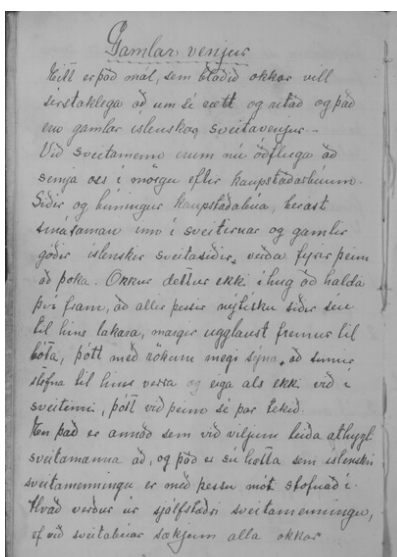 Gamlar venjur
Eitt er það mál, sem blaðið okkar vill
sérstaklega að um sé rætt og ritað og það
eru gamlar íslenskar sveitavenjur. -
Við sveitamenn erum nú óðfluga að
semja oss í mörgu eftir kaupstaðarbúum.
Siðir og búningur kaupstaðabúa, berast
smásaman inn í sveitirnar og gamlir
góðir íslenskir sveitasiðir, verða fyrir þeim
að þoka. Okkur dettur ekki í hug að halda
því fram, að allir þessir nýtísku siðir séu
til hins lakara, margir ugglaust fremur til
bóta, þótt með rökum megi sýna, að sumir
stofna til hins verra og eiga als ekki við í
sveitinni, þótt við þeim sé þar tekið.
En það er annað sem við viljum leiða athygl
sveitamanna að, og það er sú hætta sem íslenskri
sveitamenningu er með þessu mót stofnað í.
Hvað verður úr sjálfstæðri sveitamenningu,
ef við sveitabúar sækjum alla okkar